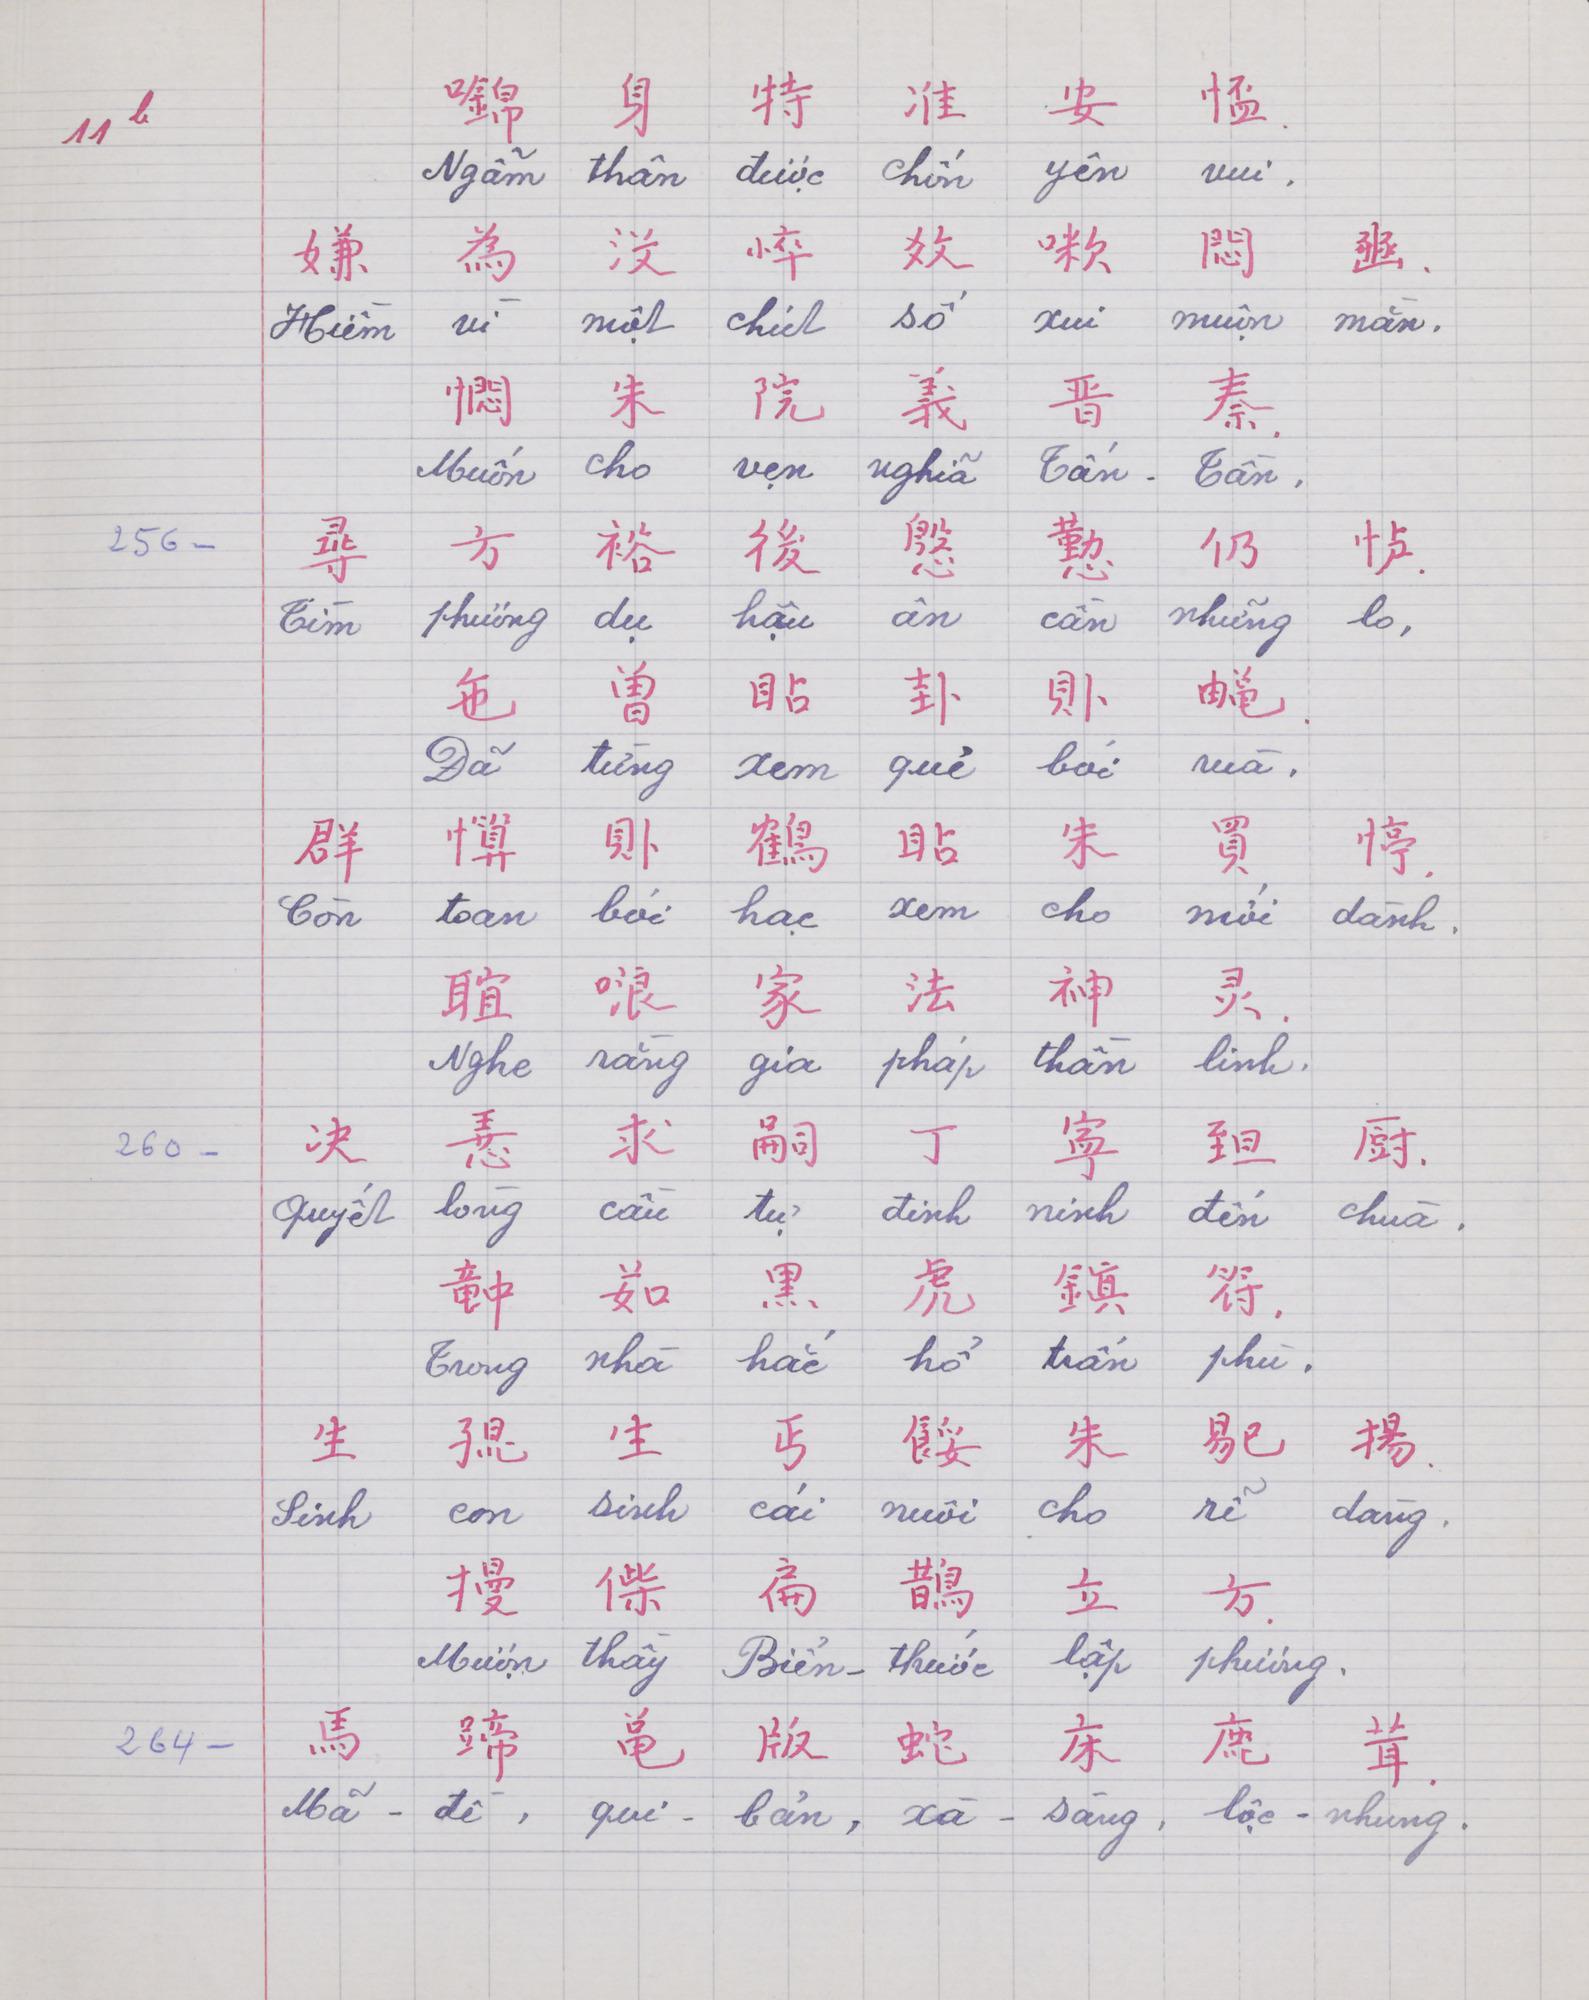 11b
㘛 身 特 准 安 㥁.
Ngẫm thân được chốn yên vui.
嫌 為 没 悴 效 㗜 悶 𢆧.
Hiềm vì một chiết số xui muộn mằn.
憫 朱 院 義 晋 秦.
Muốn cho vẹn nghĩa Tấn - Tần.
256 -
尋 方 裕 後 慇 懃 仍 𢗼.
Tìm phương dụ hậu ân cần những lo,
㐌 曽 䀡 卦 貝卜 𧍋.
Đã từng xem quẻ bói rùa.
群 憚 貝卜 鶴 䀡 朱 買 停.
Còn toan bói hạc xem cho mới dành.
䎳 哴 家 法 神 灵.
Nghe rằng gia pháp thần linh.
260 -
决 𢚸 求 嗣 丁 寧 𦤾 厨.
Quyết lòng cầu tự đinh ninh đến chùa.
𥪝 茹 黒 虎 鎮 符.
Trong nhà hắc hổ trấn phù.
生 𡥵 生 丐 餒 朱 易 揚.
Sinh con sinh cái nuôi cho rễ dàng.
摱 偨 扁 鵲 立 方.
Mượn thầy Biển - thước lập phương.
264 -
馬 蹄 黾 版 蛇 床 鹿 茸.
Mã - đề, qui - bản, xà - sàng, lộc - nhung.